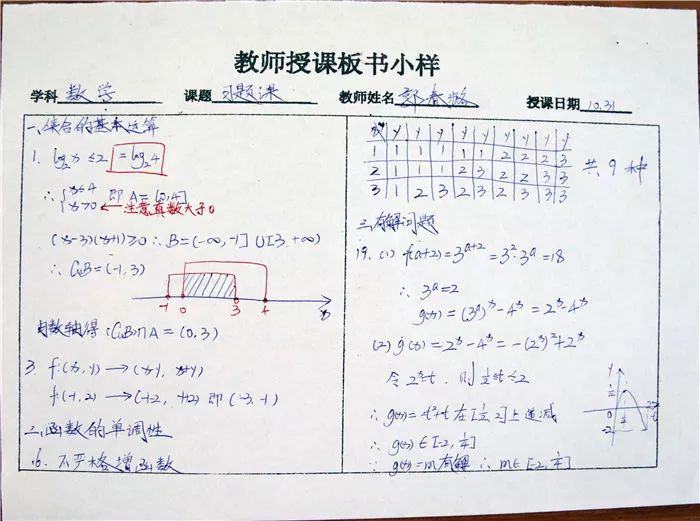 教师授课板书小样
学科 数学 课题 习题课 教师姓名 授课日期 10.31
一、集合的基本运算
1. log₂x ≤ 2 = log₂4
∴ { x≤4 即 A = (0,4]
x>0 ← 注意真数大于0
(x-3)(x+1)≥0 ∴ B=(-∞,-1]∪[3,+∞)
∴ C_uB=(-1,3)
-1 0 3 4 x
由数轴得 (C_uB)∩A = (0,3)
3. f:(x,y) → (x-y, x+y)
f:(-1,2) → (-1-2, -1+2) 即 (-3,1)
二、函数的单调性
6. 不严格增函数
y y y y y y y y y
1 1 1 1 1 1 2 2 2 3
2 1 1 1 2 3 2 2 3 3
3 1 2 3 2 3 2 3 3 3
共 9 种
三、有解问题
19. (1) f(a+2)=3^{a+2}=3²·3^a=18
∴ 3^a=2
g(x)=(3^a)^x-4^x=2^x-4^x
(2) g(x)=2^x-4^x=-(2^x)²+2^x
令 2^x=t, 则 ½≤t≤2
∴ g(x)=-t²+t 在[½,2]上递减
∴ g(x)∈[-2,¼]
∴ g(x)=m 有解 ∴ m∈[-2,¼]